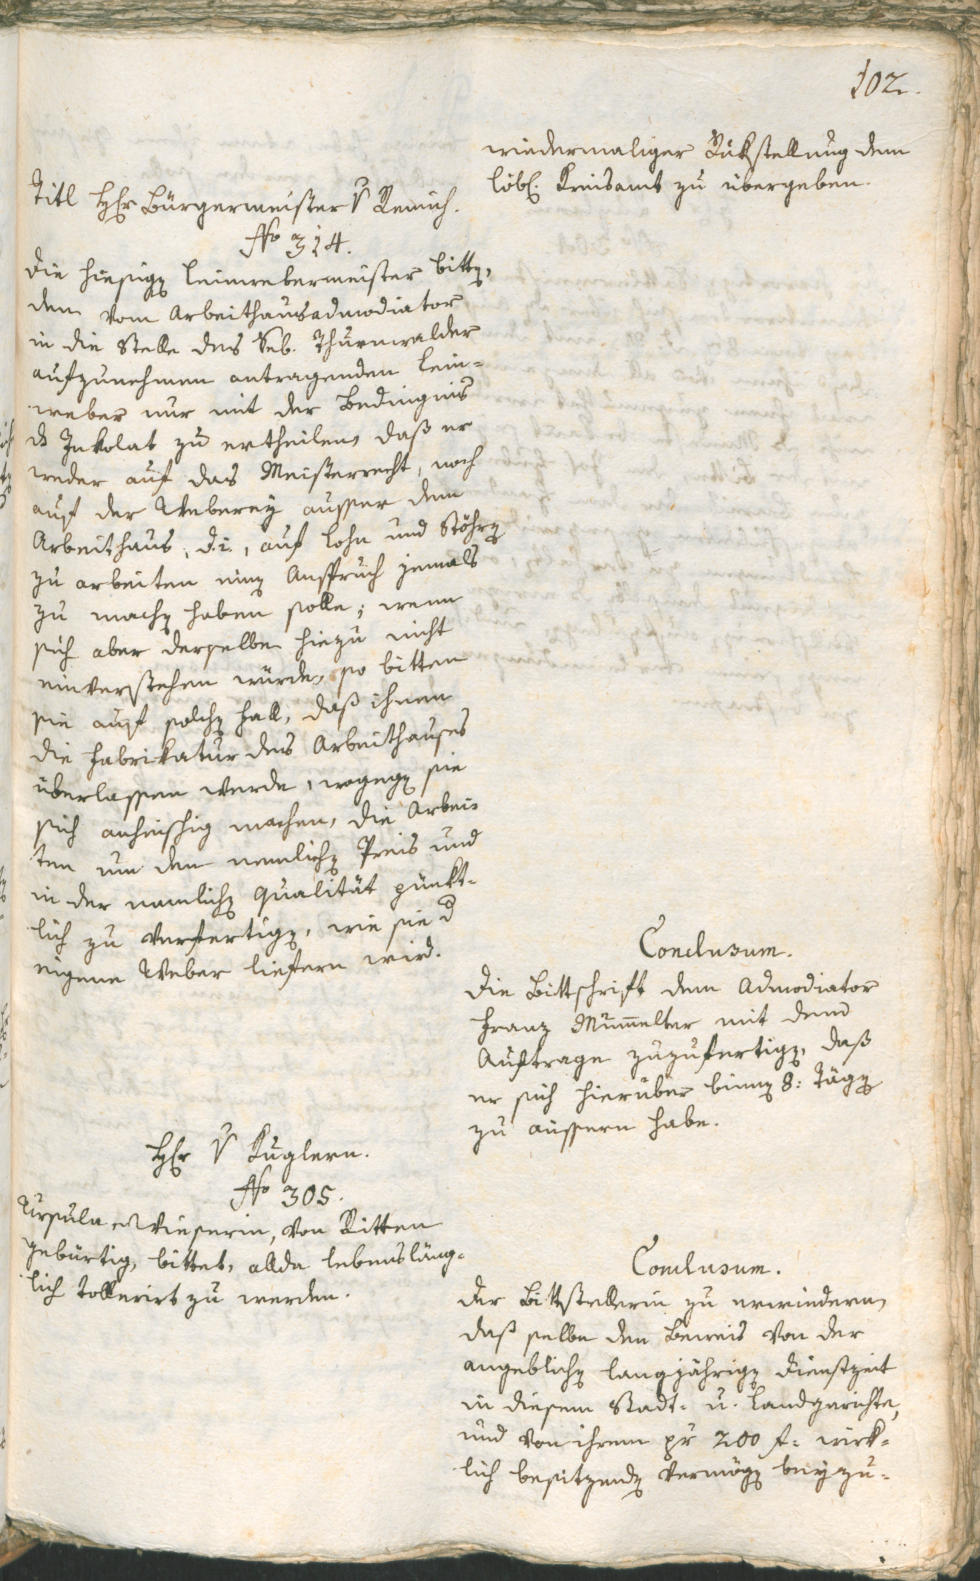 102.
wiedermaliger Rükstellung dem
löbl. Kreisamt zu übergeben.
Titl Hr Bürgermeister v Remich.
No 314.
Die hiesigen Leinwebermeister bitten,
dem vom Arbeithausadmodiator
in die Stelle des Seb. Thurnwalder
aufzunehmen antragenden Lein-
weber nur mit der Bedingnis
das Inkolat zu ertheilen, daß er
weder auf das Meisterrecht, noch
auf der Weberey ausser dem
Arbeithaus, d.i., auf Lohn und Stöhren
zu arbeiten einen Anspruch jemals
zu machen haben solle; wenn
sich aber derselbe hiezu nicht
einverstehen würde, so bitten
sie auf solchen Fall, daß ihnen
die Fabrikatur des Arbeithauses
überlassen werde, wogegen sie
sich anheischig machen, die Arbei-
ten um den nemlichen Preis und
in der nämlichen Qualität pünkt-
lich zu verfertigen, wie sie d
eigene Weber liefern wird.
Conclusum.
Die Bittschrift dem Admodiator
Franz Mum̄elter mit dem
Auftrage zuzufertigen, daß
er sich hierüber binnen 8: Tägen
zu äussern habe.
Hr v Kuglern.
No 305.
Ursula Vieserin, von Ritten
gebürtig, bittet, allda lebensläng-
lich tollerirt zu werden.
Conclusum.
Der Bittstellerin zu erwiedern,
daß selbe den Beweis von der
angeblichen langjährigen Dienstzeit
in diesem Stadt- u. Landgerichte,
und von ihrem pr 200 f: wirk-
lich besitzenden Vermögen beyzu-